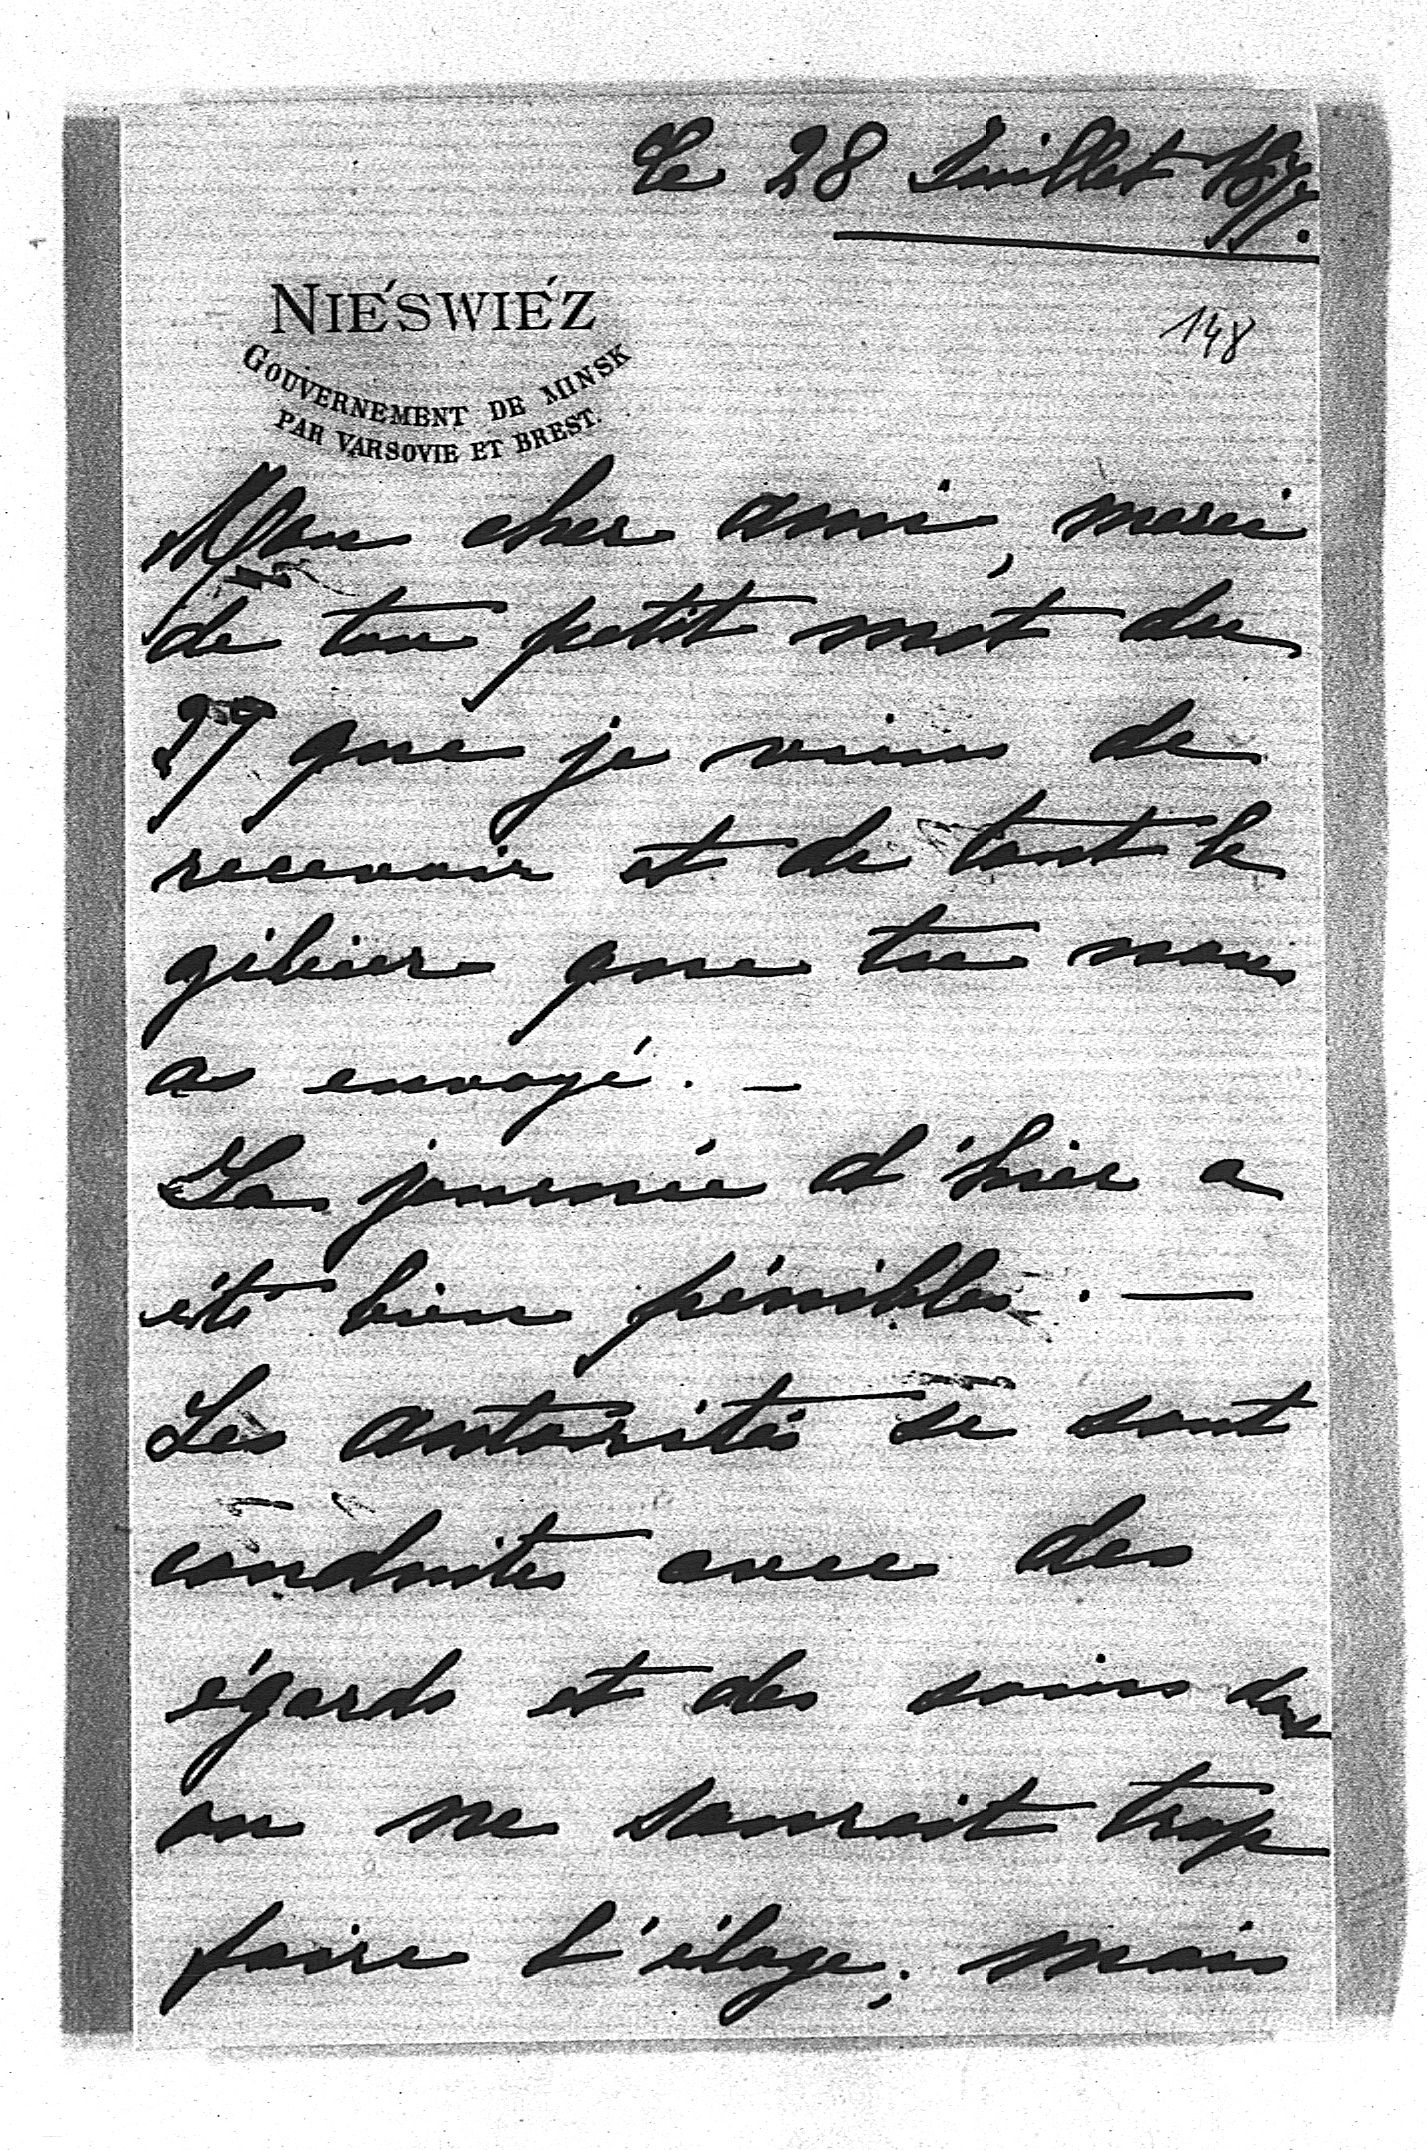 Le 28 Juillet 1877.
148
NIÉSWIÉZ
GOUVERNEMENT DE MINSK
PAR VARSOVIE ET BREST.
Mon cher ami, merci
de ton petit mot du
27 que je viens de
recevoir et de tout le
gibier que tu nous
as envoyé. —
La journée d'hier a
été bien pénible. —
Les autorités se sont
conduites avec des
égards et des soins dont
on ne saurait trop
faire l'éloge; mais